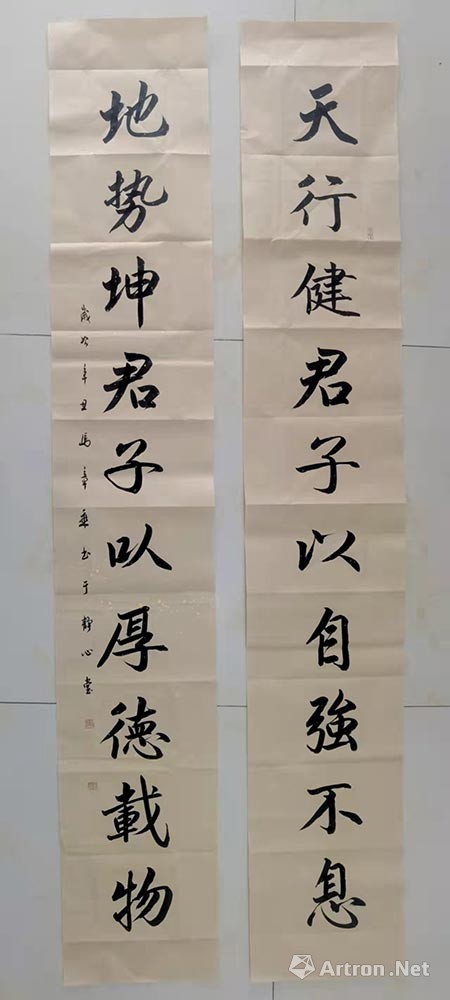 天行健君子以自強不息
地势坤君子㕥厚德載物
歲次辛丑馬
书于靜心堂
Artron.Net